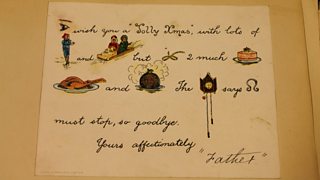 I wish you a "Jolly Xmas," with lots of
and but 2 much
and The says
must stop, so goodbye.
Yours affectionately
"Father"